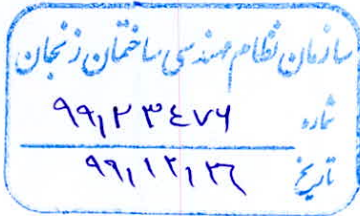 سازمان نظام مهندسی ساختمان زنجان
شماره ۹۹,۲۳۴۷۶
تاریخ ۹۹,۱۲,۲۶